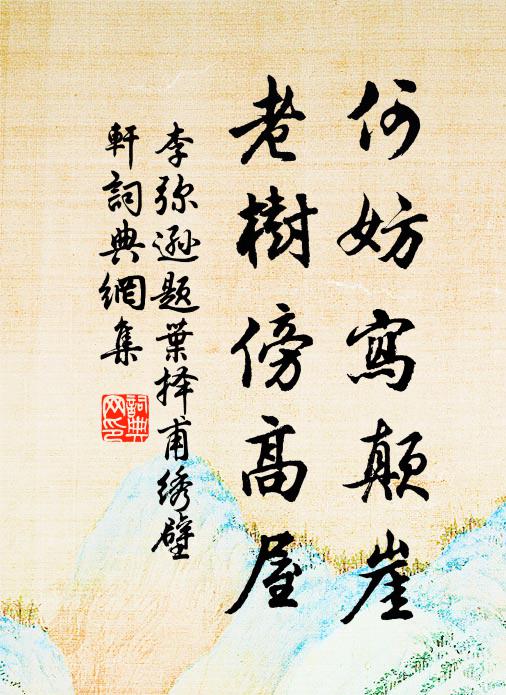 何妨寫顛崖
老樹傍高屋
李弥遜题葉择甫绣壁
軒詞典網集
詞典网印